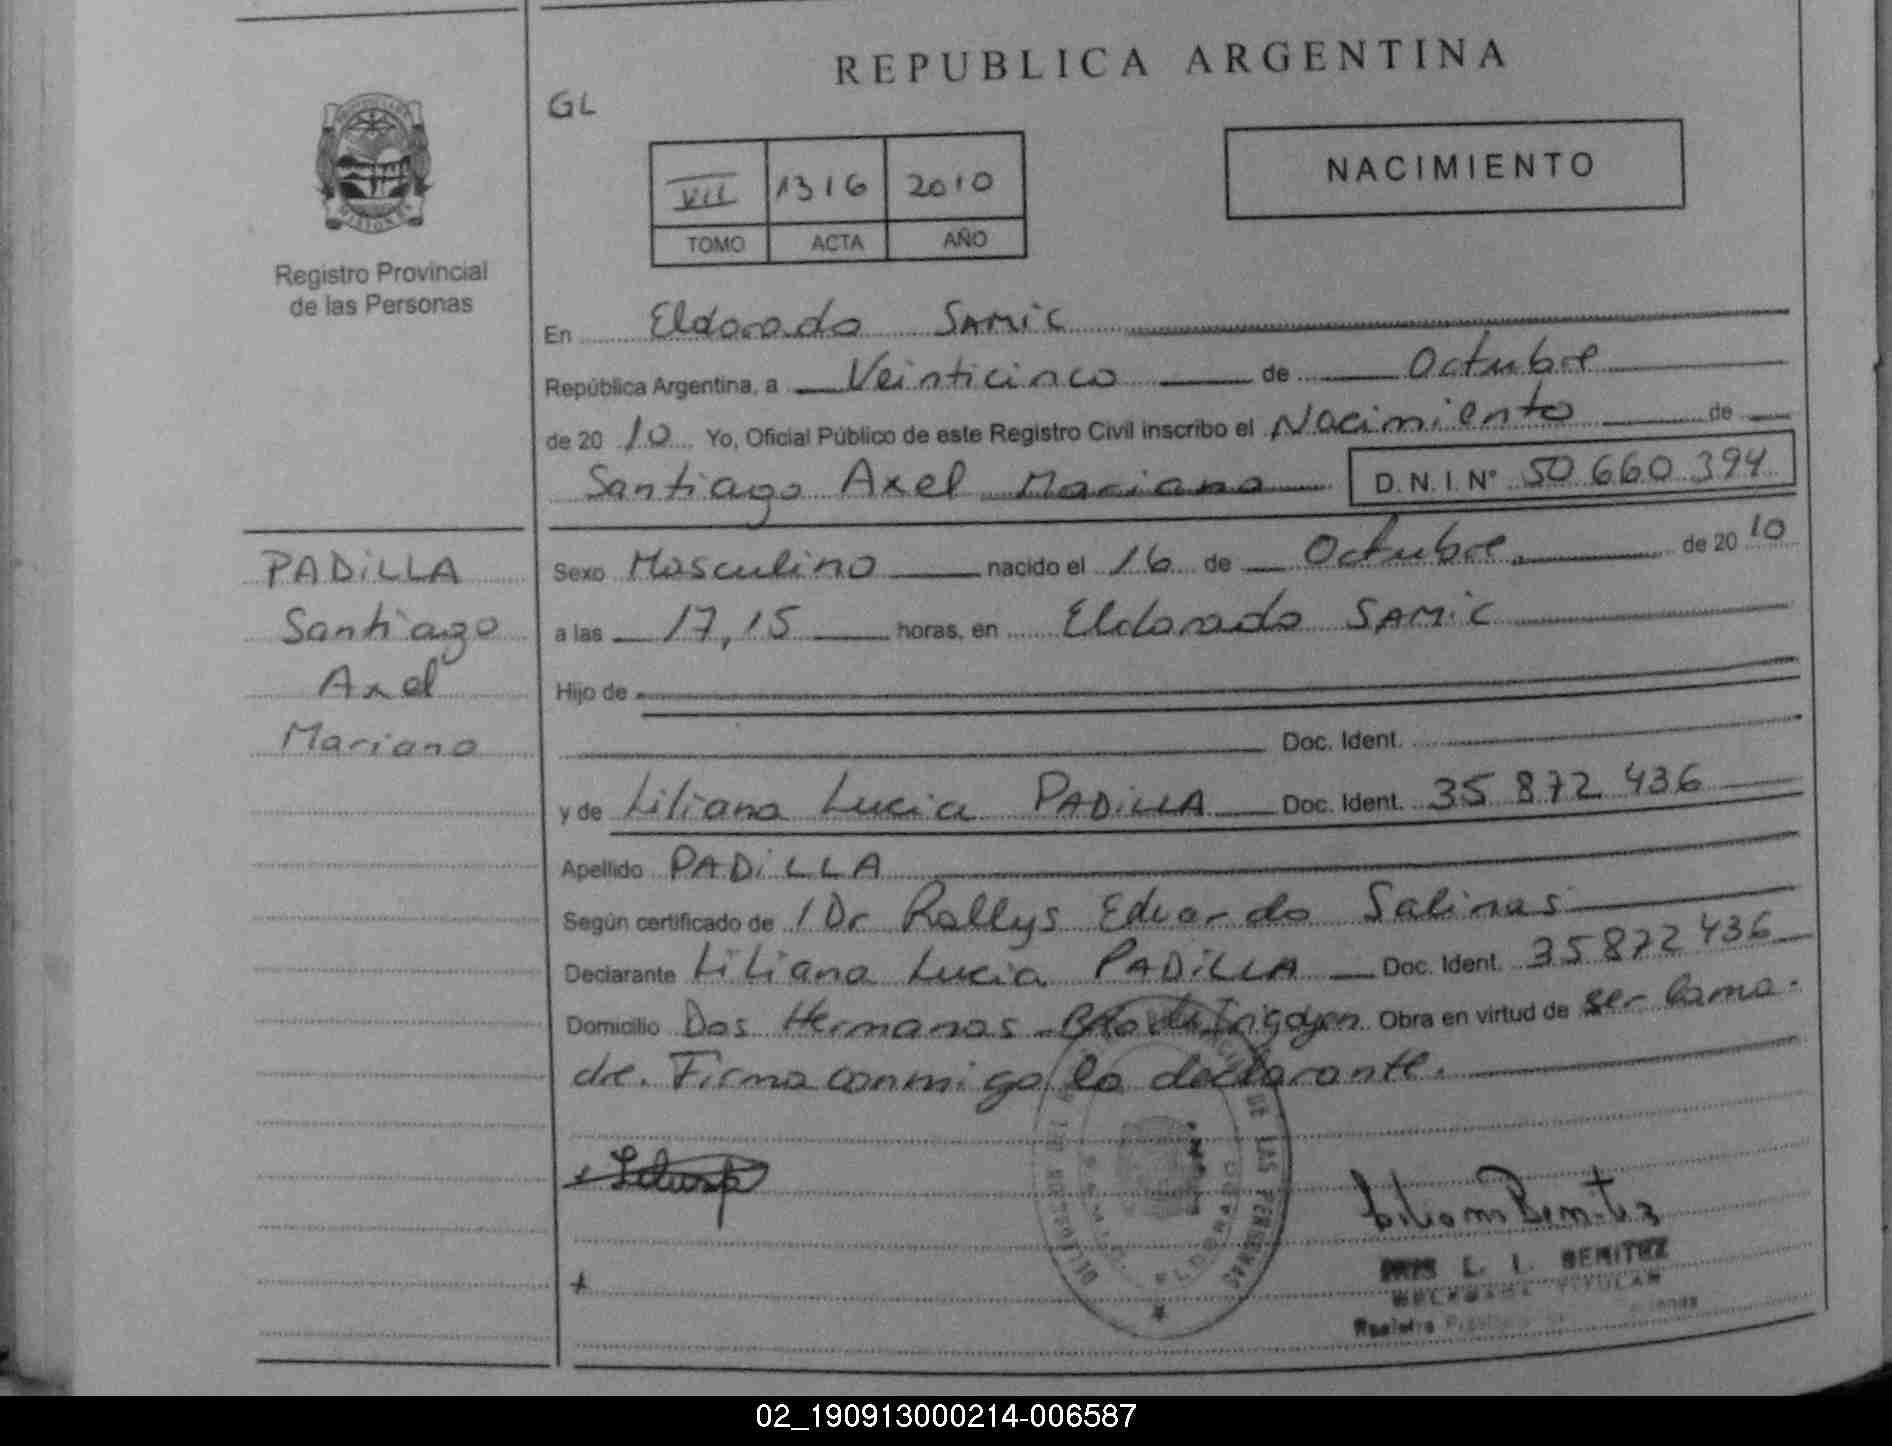 REPUBLICA ARGENTINA
GL
VII 1316 2010
TOMO ACTA AÑO
NACIMIENTO
Registro Provincial
de las Personas
En Eldorado SAMiC
República Argentina, a Veinticinco de Octubre
de 20 10 Yo, Oficial Público de este Registro Civil inscribo el Nacimiento de
Santiago Axel Mariano D.N.I. Nº 50 660 394
PADiLLA
Santiago
Axel
Mariano
Sexo Masculino nacido el 16 de Octubre de 20 10
a las 17,15 horas, en Eldorado SAMiC
Hijo de
Doc. Ident.
y de Liliana Lucia PADiLLA Doc. Ident. 35 872 436
Apellido PADiLLA
Según certificado de / Dr Rallys Eduardo Salinas
Declarante Liliana Lucia PADiLLA Doc. Ident. 35872436
Domicilio Dos Hermanas Irigoyen Obra en virtud de ser la ma-
dre. Firma conmigo la declarante.
DE LAS PERSONAS
ELDORADO
Benitez
L. I. BENITEZ
TITULAR
Registro
02_190913000214-006587